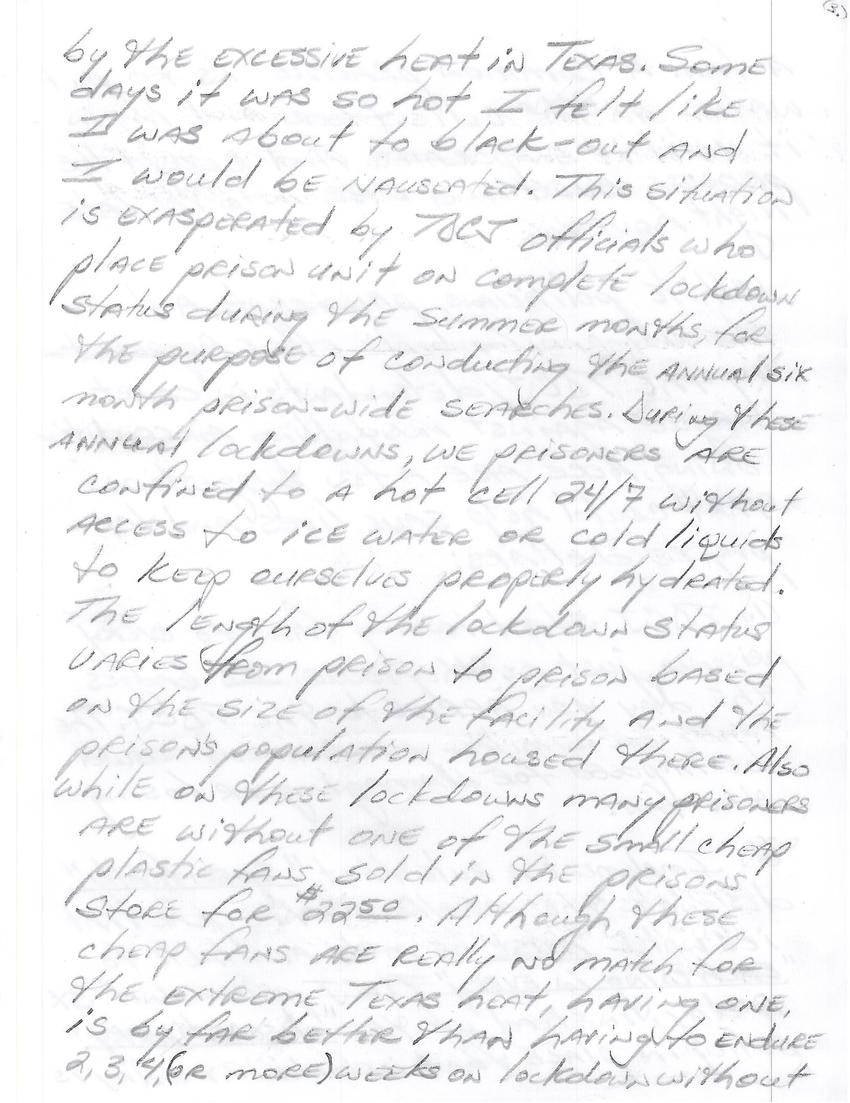 (3.)
by the excessive heat in Texas. Some
days it was so hot I felt like
I was about to black-out and
I would be nauseated. This situation
is exasperated by TDCJ officials who
place prison unit on complete lockdown
status during the summer months, for
the purpose of conducting the annual six
month prison-wide searches. During these
annual lockdowns, we prisoners are
confined to a hot cell 24/7 without
access to ice water or cold liquids
to keep ourselves properly hydrated.
The length of the lockdown status
varies from prison to prison based
on the size of the facility and the
prison's population housed there. Also
while on these lockdowns many prisoners
are without one of the small cheap
plastic fans, sold in the prisons
store for $22.50. Although these
cheap fans are really no match for
the extreme Texas heat, having one,
is by far better than having to endure
2, 3, 4, (or more) weeks on lockdown without